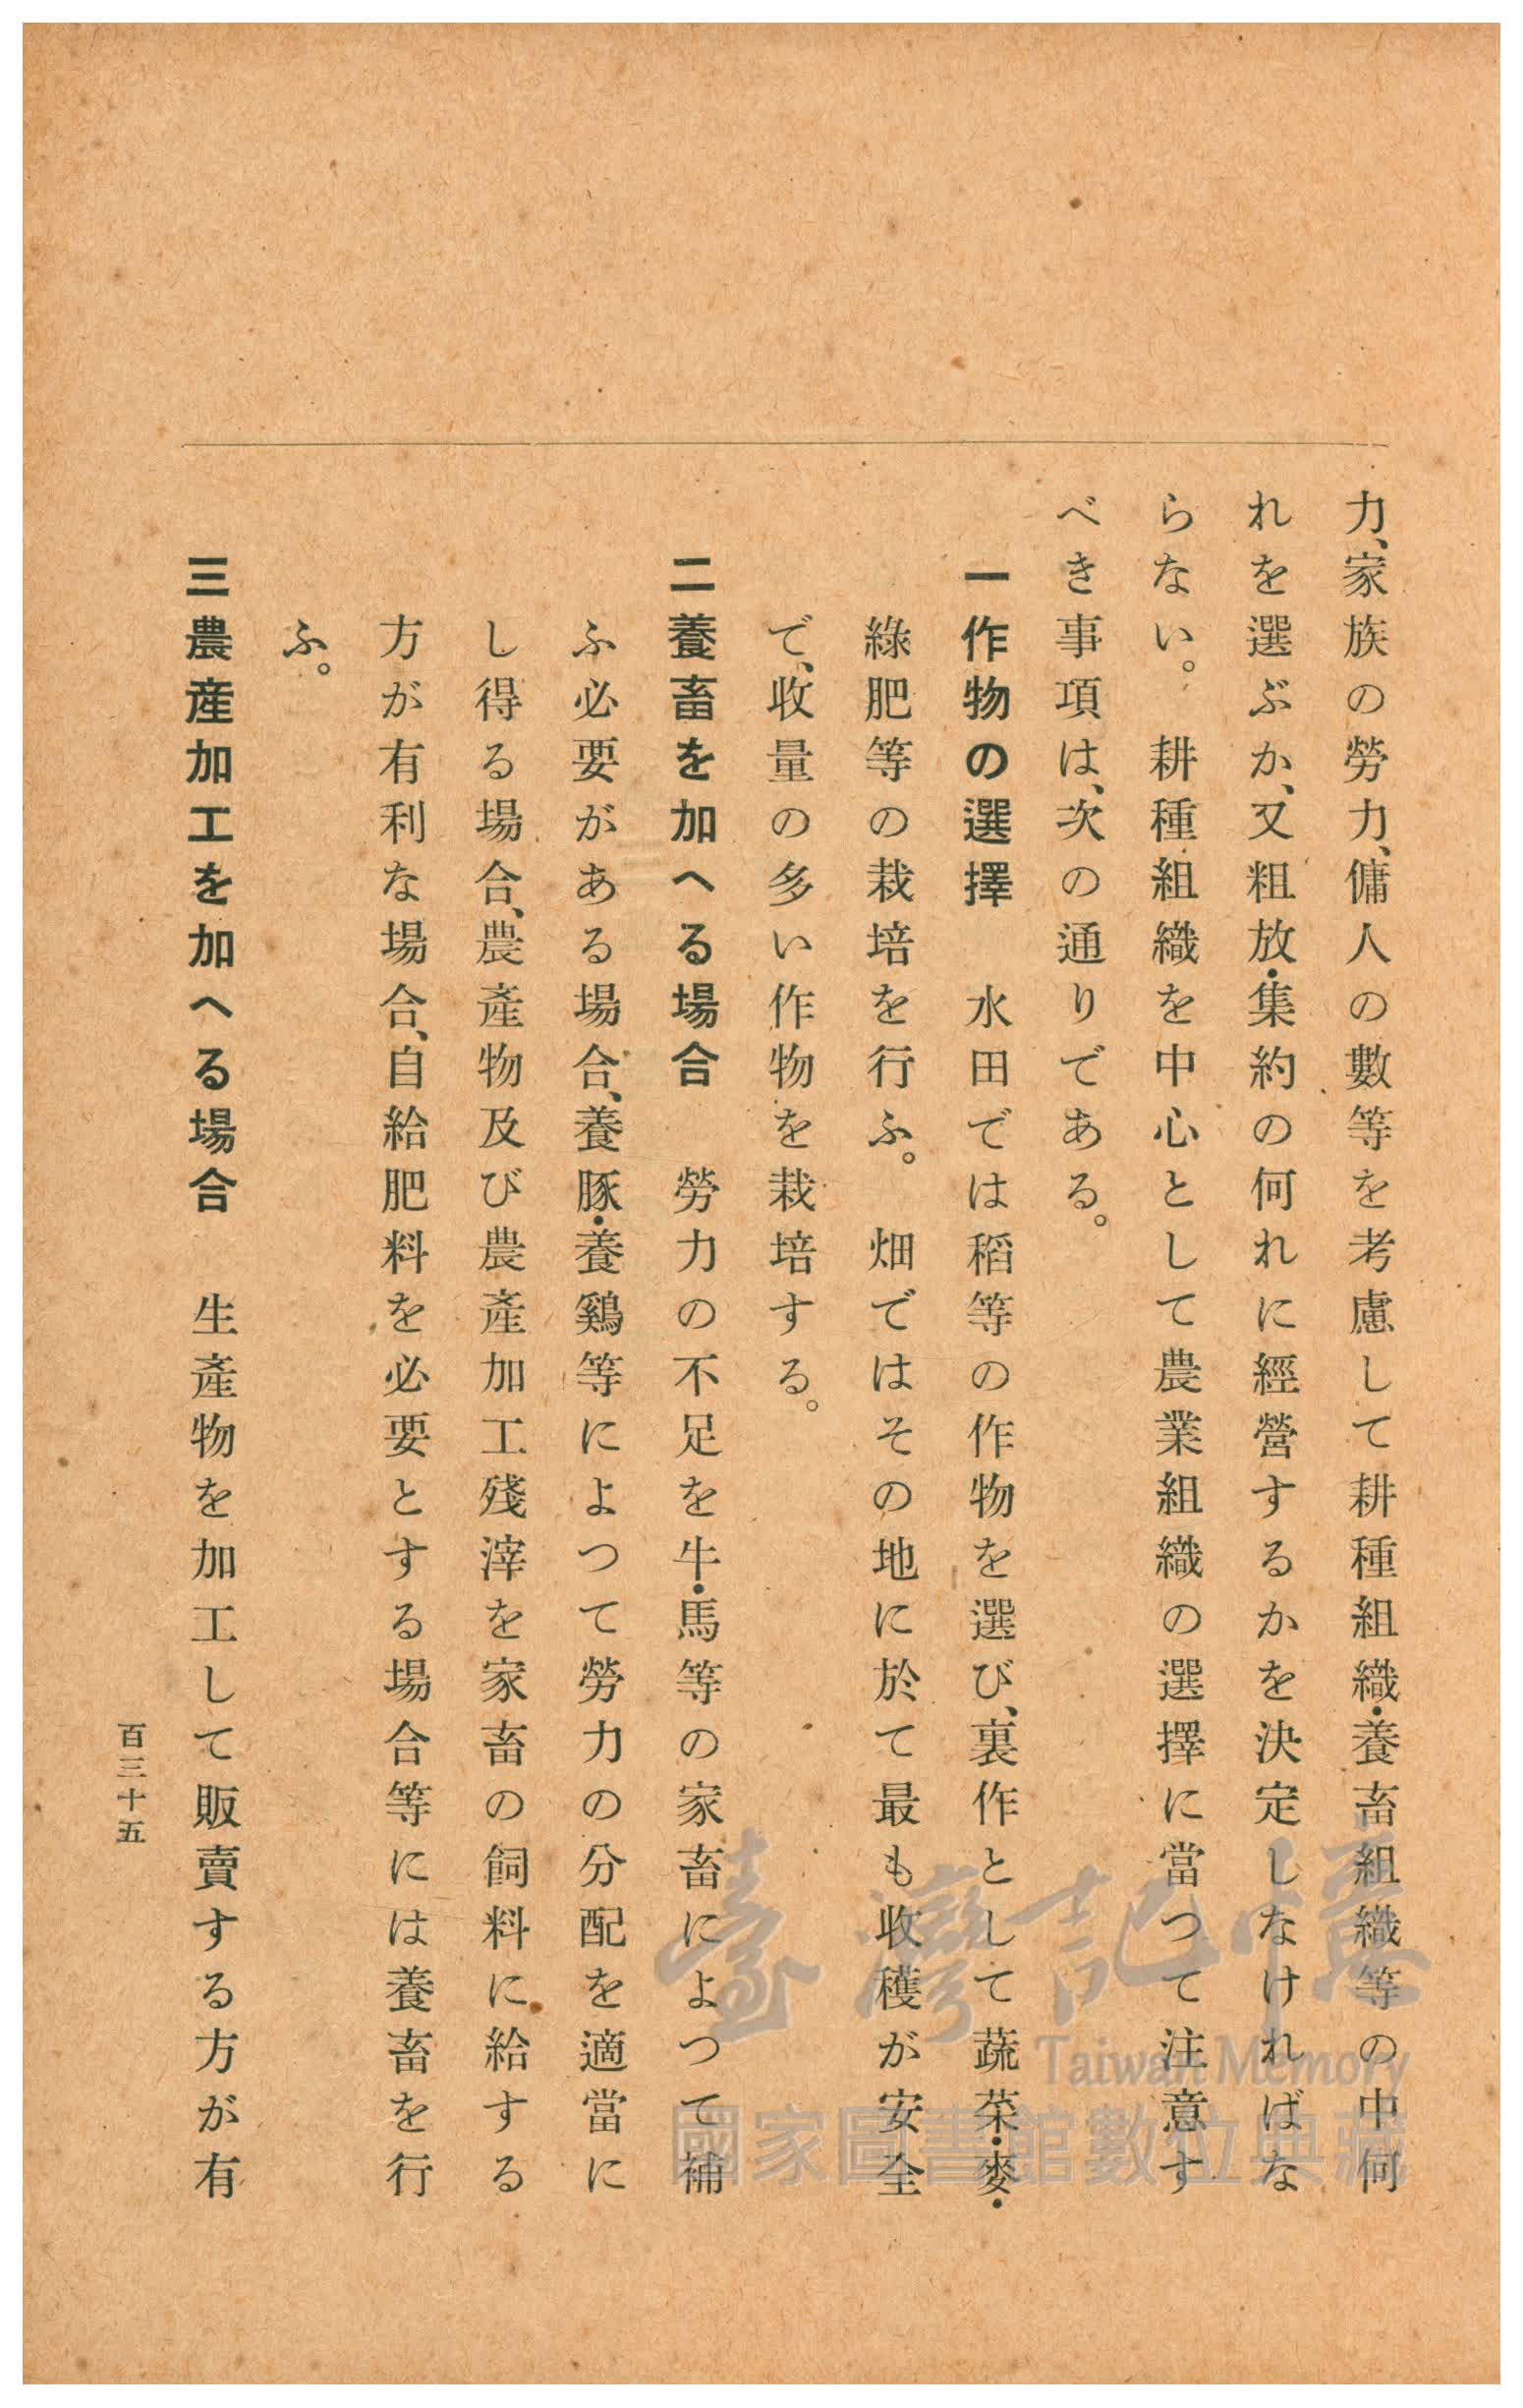 力、家族の勞力、傭人の數等を考慮して耕種組織・養畜組織等の中何
れを選ぶか、又粗放・集約の何れに經營するかを決定しなければな
らない。　耕種組織を中心として農業組織の選擇に當つて注意す
べき事項は、次の通りである。
一作物の選擇　水田では稻等の作物を選び、裏作として蔬菜・麥・
綠肥等の栽培を行ふ。　畑ではその地に於て最も收穫が安全
で、收量の多い作物を栽培する。
二養畜を加へる場合　勞力の不足を牛・馬等の家畜によつて補
ふ必要がある場合、養豚・養鷄等によつて勞力の分配を適當に
し得る場合、農產物及び農產加工殘滓を家畜の飼料に給する
方が有利な場合、自給肥料を必要とする場合等には養畜を行
ふ。
三農產加工を加へる場合　生產物を加工して販賣する方が有
百三十五
臺灣記憶
Taiwan Memory
國家圖書館數位典藏